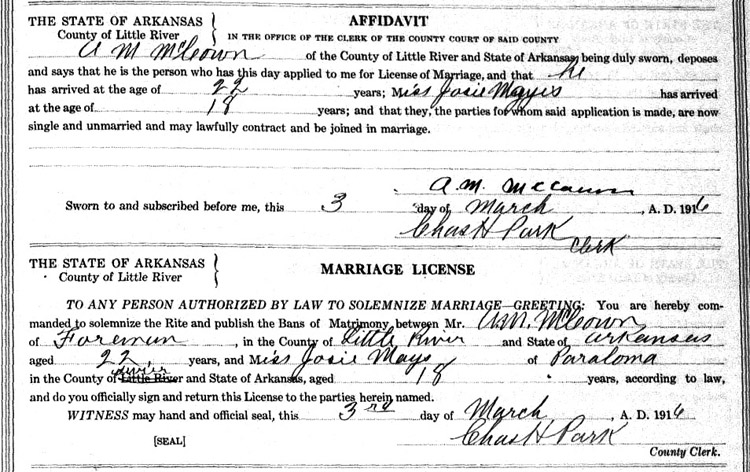 THE STATE OF ARKANSAS
County of Little River
AFFIDAVIT
IN THE OFFICE OF THE CLERK OF THE COUNTY COURT OF SAID COUNTY
A M McCown of the County of Little River and State of Arkansas, being duly sworn, deposes
and says that he is the person who has this day applied to me for License of Marriage, and that he
has arrived at the age of 22 years; Miss Josie Mayes has arrived
at the age of 18 years; and that they, the parties for whom said application is made, are now
single and unmarried and may lawfully contract and be joined in marriage.
A. M. McCown
Sworn to and subscribed before me, this 3 day of March, A. D. 1916
Chas H Park
Clerk
THE STATE OF ARKANSAS
County of Little River
MARRIAGE LICENSE
TO ANY PERSON AUTHORIZED BY LAW TO SOLEMNIZE MARRIAGE—GREETING: You are hereby com-
manded to solemnize the Rite and publish the Bans of Matrimony between Mr. A.M. McCown
of Foreman, in the County of Little River and State of Arkansas
aged 22, years, and Miss Josie Mays of Paraloma
in the County of Sevier Little River and State of Arkansas, aged 18 years, according to law,
and do you officially sign and return this License to the parties herein named.
WITNESS may hand and official seal, this 3rd day of March, A. D. 1916
[SEAL]
Chas H Park
County Clerk.